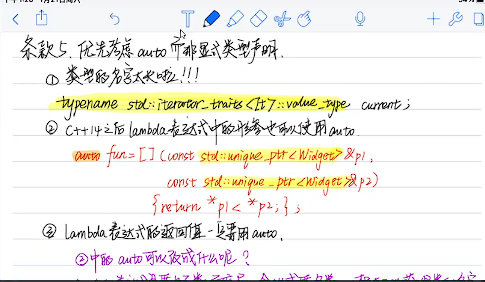 条款5. 优先考虑 auto 而非显式类型声明.
① 类型的名字太长啦!!!
typename std::iterator_traits<It>::value_type current;
② C++14之后lambda表达式中的形参也可以使用auto
auto fun=[](const std::unique_ptr<Widget>&p1,
const std::unique_ptr<Widget>&p2)
{return *p1<*p2;};
③ Lambda表达式的返回值一定要用auto.
②中的auto可以改成什么呢?